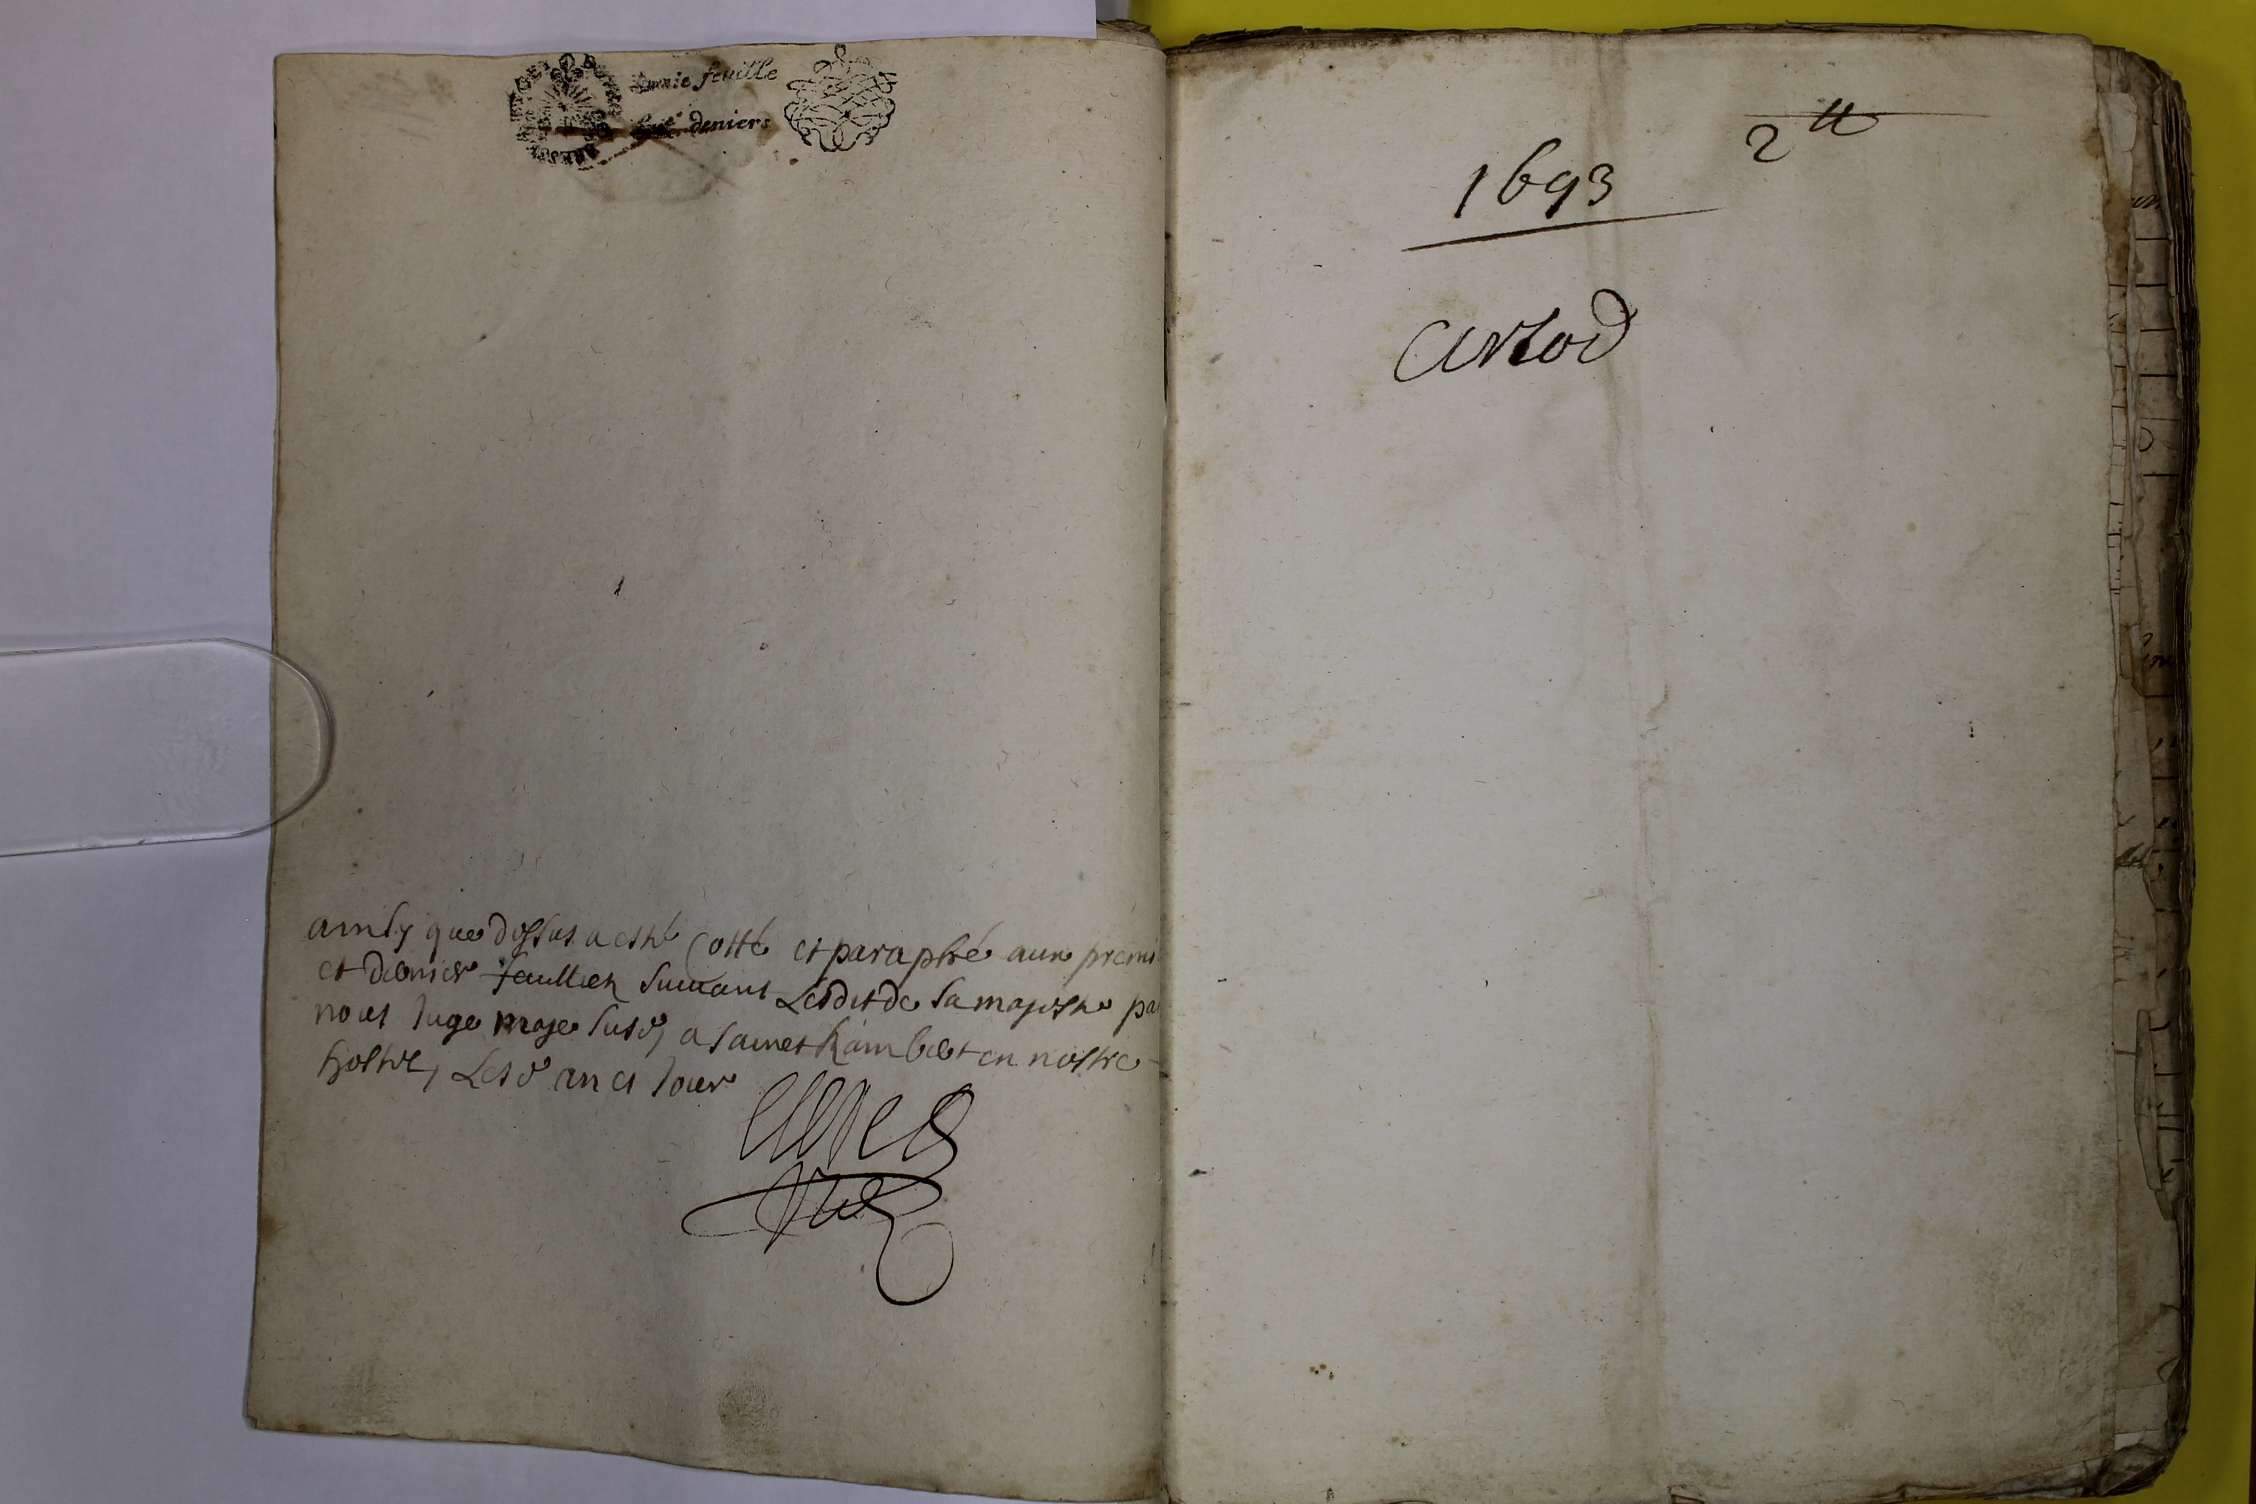 demie feuille
huit deniers
ainsy que dessus a esté Cotté et paraphé aux premi
et dernier feuillets suivant Ledit de sa majesté par
nous Juge maje susd, a sainct Rambert en nostre
hostel, Lesd an et Jour
1693
2 tt
Artod